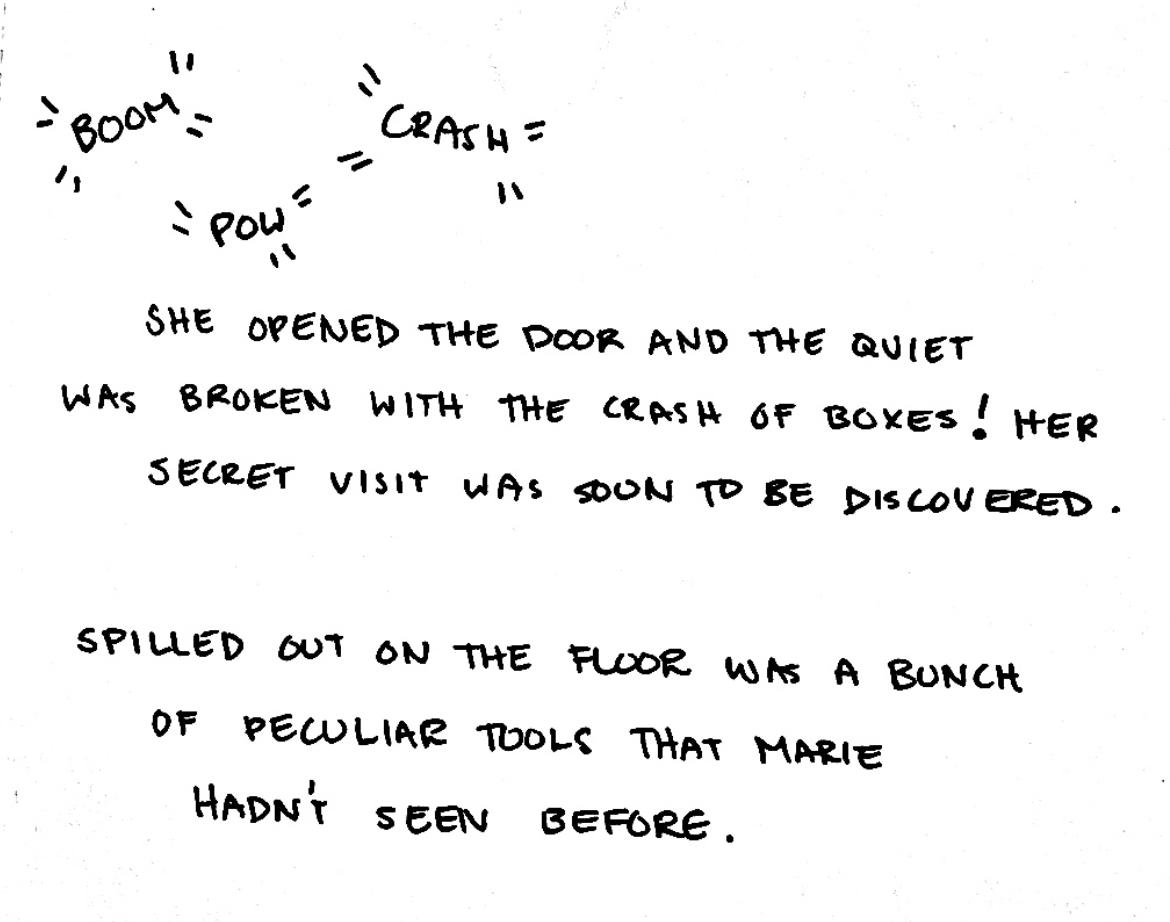 BOOM
CRASH
POW
SHE OPENED THE DOOR AND THE QUIET
WAS BROKEN WITH THE CRASH OF BOXES! HER
SECRET VISIT WAS SOON TO BE DISCOVERED.
SPILLED OUT ON THE FLOOR WAS A BUNCH
OF PECULIAR TOOLS THAT MARIE
HADN'T SEEN BEFORE.